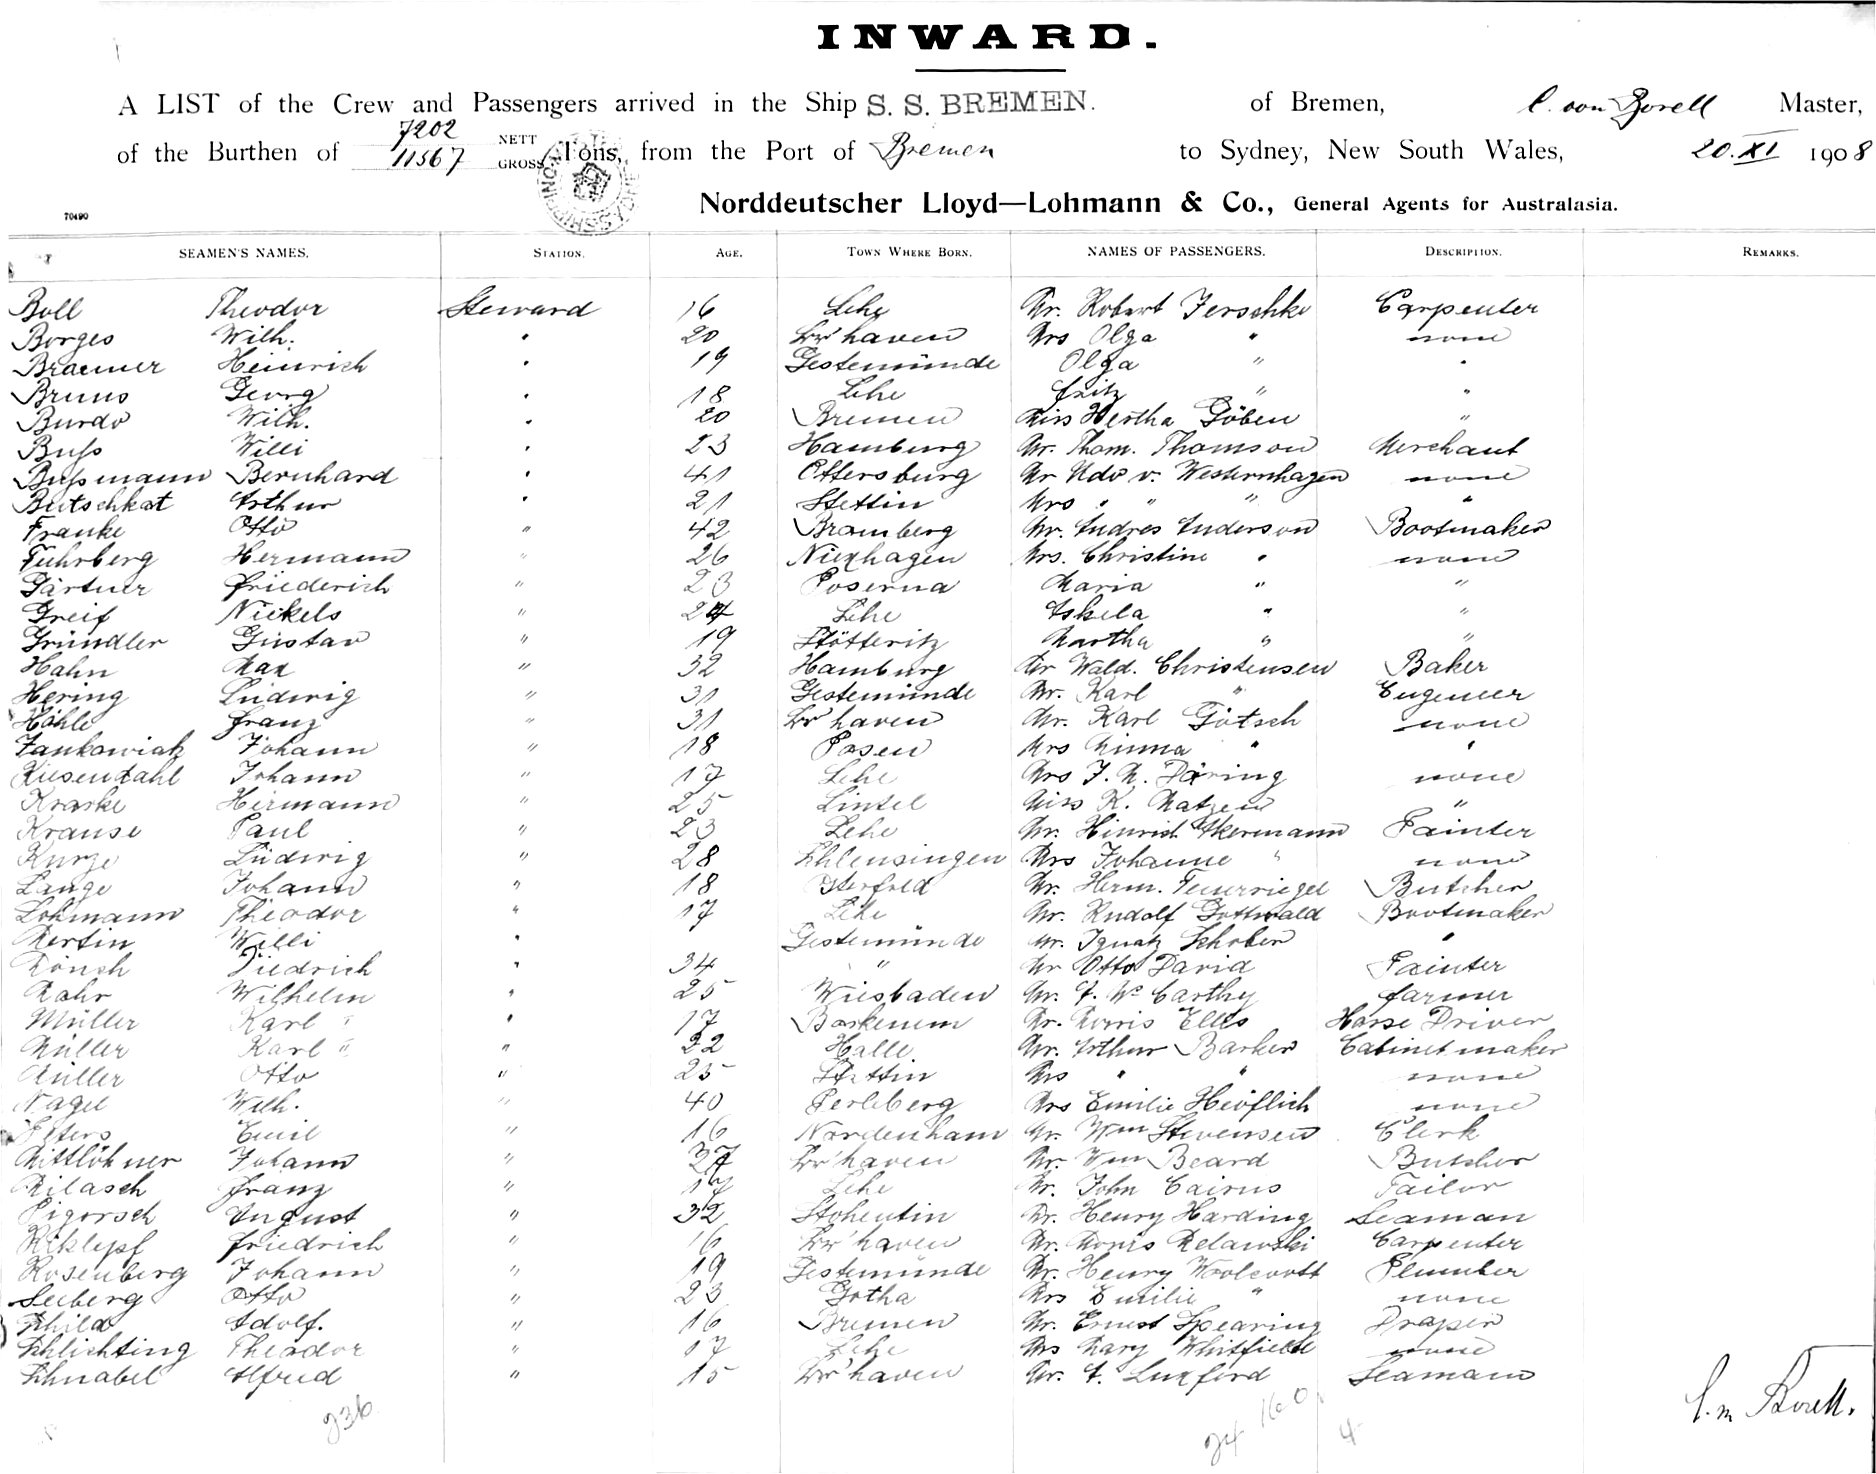 INWARD.
A LIST of the Crew and Passengers arrived in the Ship S. S. BREMEN. of Bremen, C. von Borell Master,
7202
of the Burthen of 11567 NETT GROSS Tons, from the Port of Bremen to Sydney, New South Wales, 20. XI 1908
Norddeutscher Lloyd—Lohmann & Co., General Agents for Australasia.
70490
SEAMEN'S NAMES. STATION. AGE. TOWN WHERE BORN. NAMES OF PASSENGERS. DESCRIPTION. REMARKS.
Boll Theodor Steward 16 Lehe Mr. Robert Jerschke Carpenter
Borges Wilh. " 20 Br'haven Mrs Olga " none
Braemer Heinrich " 19 Gestemünde Olga " "
Bruns Georg " 18 Lehe Fritz " "
Burdo Wilh. " 20 Bremen Miss Hertha Göben "
Buss Willi " 23 Hamburg Mr. Thom. Thomson Merchant
Bussmann Bernhard " 41 Ottersburg Mr Udo v. Westernhagen none
Butschkat Arthur " 21 Stettin Mrs " " " "
Franke Otto " 42 Bromberg Mr. Andres Anderson Bootmaker
Fuhrberg Hermann " 26 Nienhagen Mrs. Christine " none
Gärtner Friederich " 23 Poserna Maria " "
Greif Nickels " Lehe " "
Gründler Gustav " 19 Stötteritz Martha " "
Hahn Max " 32 Hamburg Mr Wald. Christensen Baker
Hering Ludwig " 31 Gestemünde Mr. Karl " Engeneer
Höhle Franz " 31 Br'haven Mr. Karl Götsch none
Jankowiak Johann " 18 Posen Mrs Minna " "
Kiesendahl Johann " 17 Lehe Mrs J. M. Döring none
Kraske Hermann " 25 Lintel Miss K. Matzen "
Krause Paul " 23 Lehe Mr. Hinrich Akermann Painter
Kurze Ludwig " 28 Schleusingen Mrs Johanne " none
Lange Johann " 18 Mr. Herm. Feuerriegel Butcher
Lohmann Theodor " 17 Lehe Mr. Rudolf Gottwald Bootmaker
Mertin Willi " Gestemünde Mr. Ignatz Schober "
Mönch Diedrich " 34 " Mr Otto David Painter
Mohr Wilhelm " 25 Wiesbaden Mr. F. Mc Carthy Farmer
Müller Karl " 17 Mr. Morris Ellis Horse Driver
Müller Karl " 22 Halle Mr. Arthur Barker Cabinetmaker
Müller Otto " 25 Stettin Mrs " " none
Nagel Wilh. " 40 Perleberg Mrs Emilie Heöflich none
Peters Emil " 16 Nordenham Mr. Wm Stevensen Clerk
Mittlöhner Johann " Br'haven Mr. Wm Beard Butcher
Pilasch Franz " 17 Lehe Mr. John Cairns Tailor
Pigorsch August " 32 Stohentin Mr. Henry Harding Seaman
Friedrich " 16 Br'haven Mr. Carpenter
Rosenberg Johann " 19 Gestemünde Mr. Henry Woolcott Plumber
Seeberg Otto " 23 Gotha Mrs Emilie " none
Schild Adolf. " 16 Bremen Mr. Ernest Spearing Draper
Schlichting Theodor " 17 Lehe Ms Mary Whitfield none
Schnabel Alfred " 15 Br'haven Mr. A. Luxford Seaman
236 24 160 4
C. v. Borell.